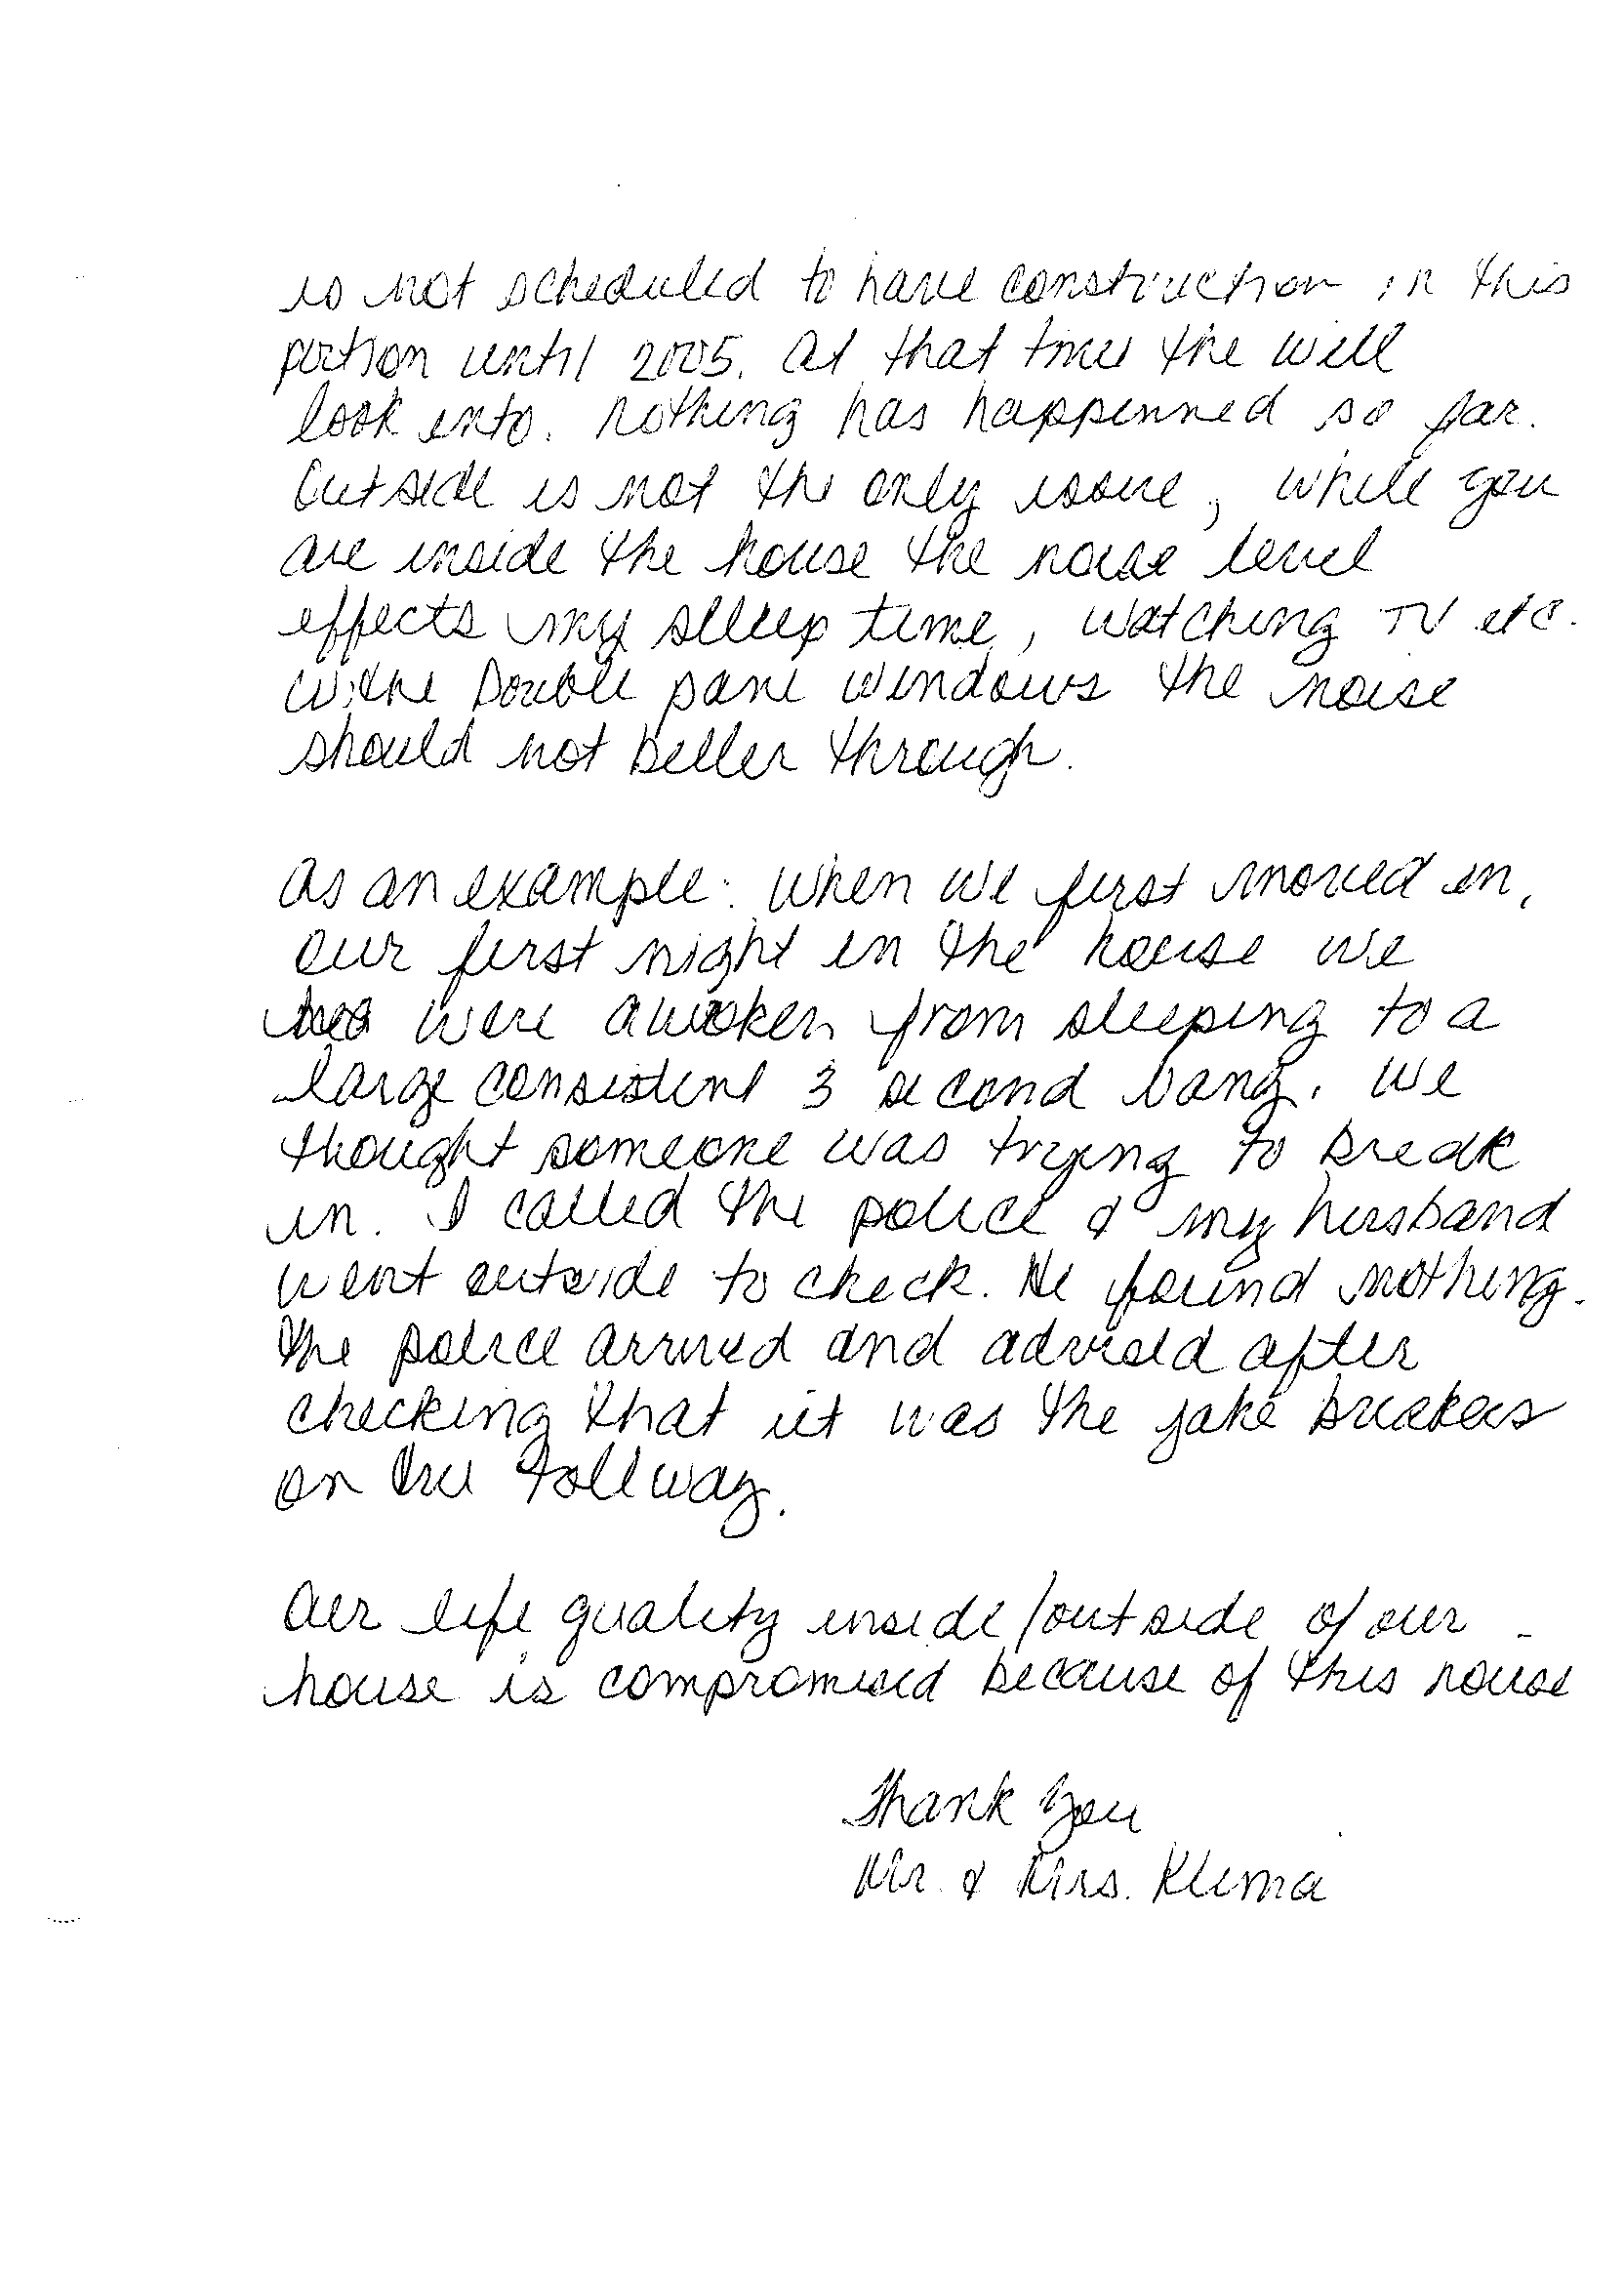 is not scheduled to have construction in this
portion until 2005. At that time the will
look into. Nothing has happenned so far.
Outside is not the only issue, while you
are inside the house the noise level
effects my sleep time, watching TV etc.
With Double pane windows the noise
should not be through.
As an example: When we first moved in,
our first night in the house we
were awoken from sleeping to a
large consistent 3 second bang. We
thought someone was trying to break
in. I called the police & my husband
went outside to check. He found nothing.
The police arrived and advised after
checking that it was the jake breakers
on the Tollway.
Our life quality inside/outside of our
house is compromised because of this noise
Thank You
Mr. & Mrs. Klima